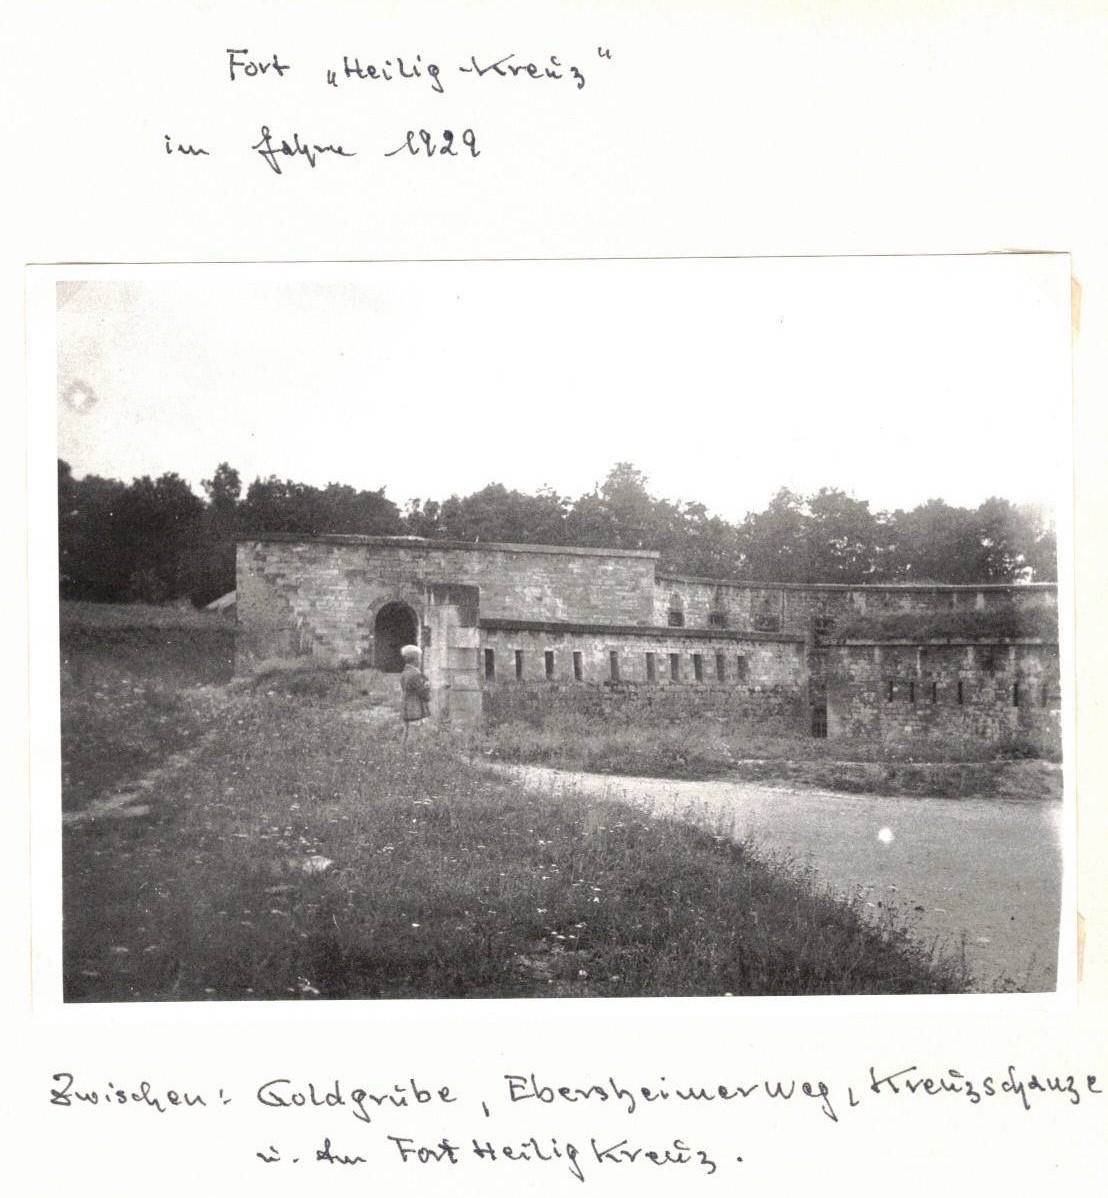 Fort „Heilig-Kreuz“
im Jahre 1929
Zwischen: Goldgrube, Ebersheimerweg, Kreuzschanze
u. Am Fort Heilig Kreuz.